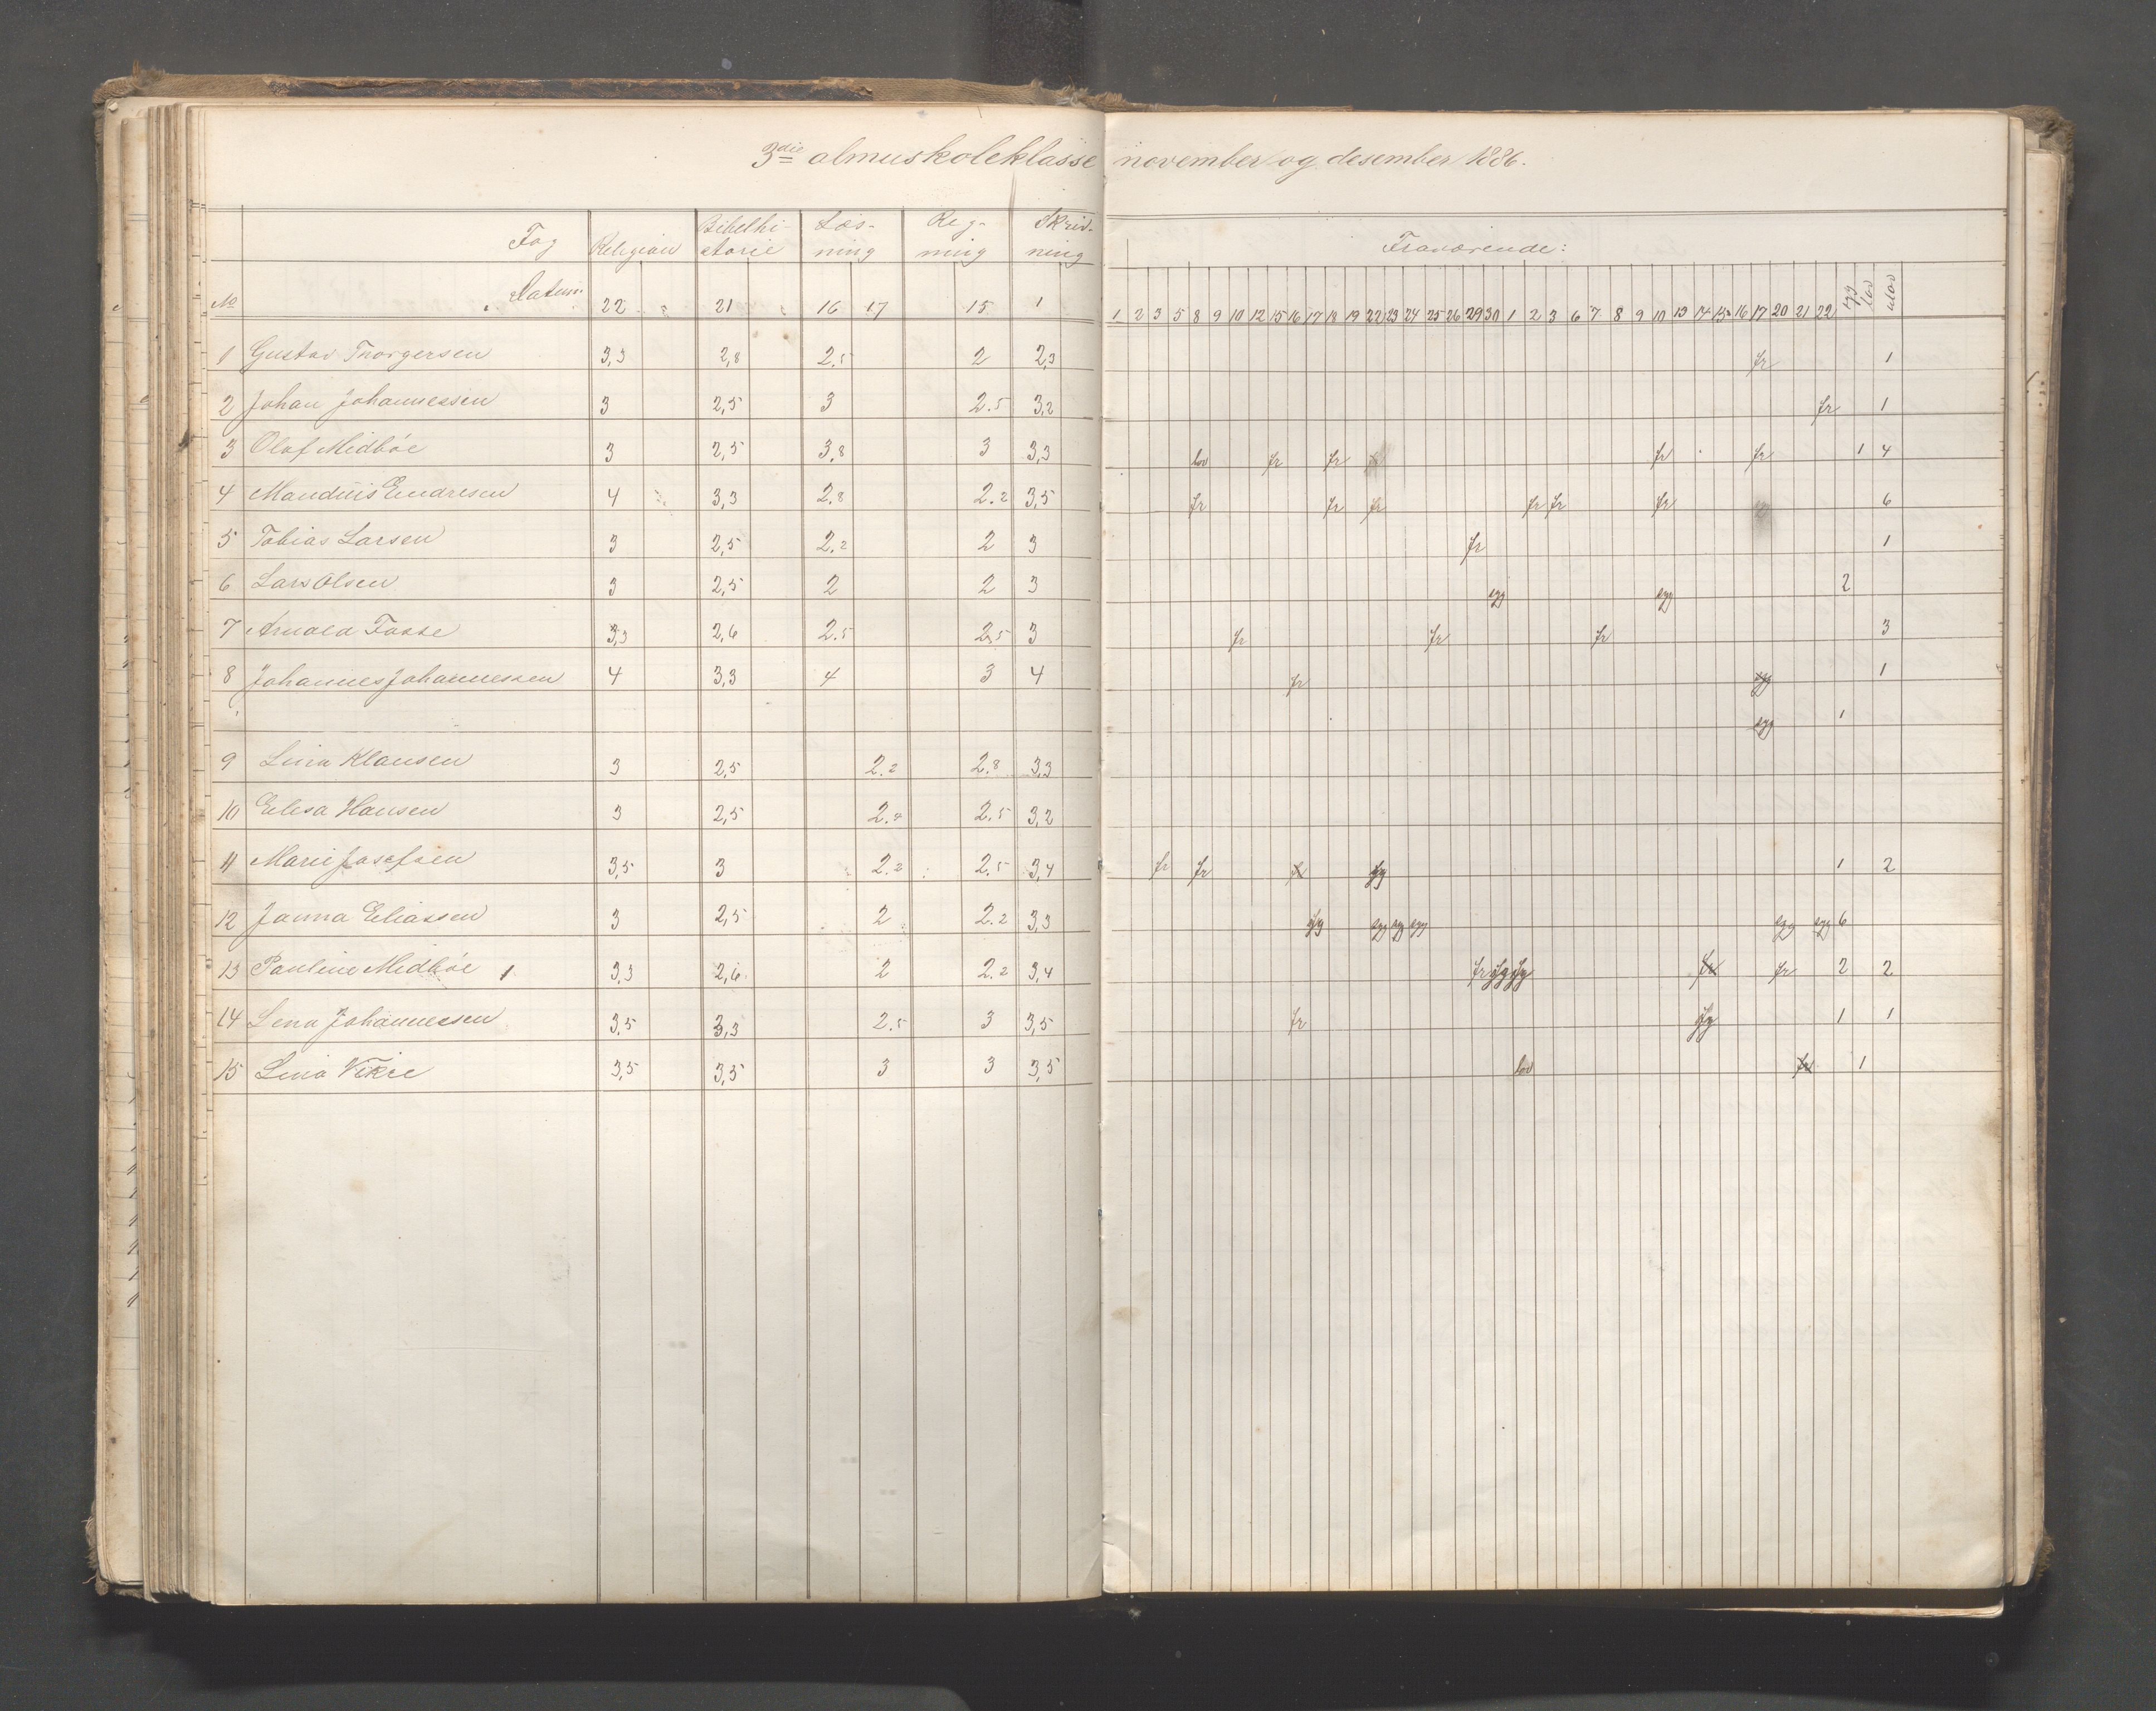 3die almuskoleklasse november og desember 1886.
Fag Religion Bibelhi- Læs- Reg- Skriv-
storie ning ning ning Fraværende:
No Datum 22 21 16 17 15 1 1 2 3 5 8 9 10 12 15 16 17 18 19 22 23 24 25 26 29 30 1 2 3 6 7 8 9 10 13 14 15 16 17 20 21 22 syg lov ulov
1 Gustav Thorgersen 3,3 2,8 2,5 2 2,3 fr 1
2 Johan Johannessen 3 2,5 3 2.5 3,2 fr 1
3 Olaf Midbøe 3 2,5 3,8 3 3,3 lov fr fr fr fr fr 1 4
4 Mandius Endresen 4 3,3 2.8 2.2 3,5 fr fr fr fr fr fr 6
5 Tobias Larsen 3 2,5 2.2 2 3 fr 1
6 Lars Olsen 3 2,5 2 2 3 syg syg 2
7 Arnold Fosse 3,3 2,6 2.5 2,5 3 fr fr fr 3
8 Johannes Johannessen 4 3,3 4 3 4 fr syg 1
syg 1
9 Lina Klausen 3 2,5 2.2 2.8 3,3
10 Elisa Hansen 3 2,5 2.4 2.5 3,2
11 Marie Josefsen 3,5 3 2.2 2.5 3,4 fr fr fr syg 1 2
12 Janna Eliassen 3 2,5 2 2.2 3,3 syg syg syg syg syg syg 6
13 Pauline Midbøe 1 3,3 2,6 2 2.2 3,4 fr syg syg fr fr 2 2
14 Lena Johannessen 3,5 3,3 2.5 3 3,5 fr syg 1 1
15 Lina Vikre 3,5 3,5 3 3 3,5 lov fr 1